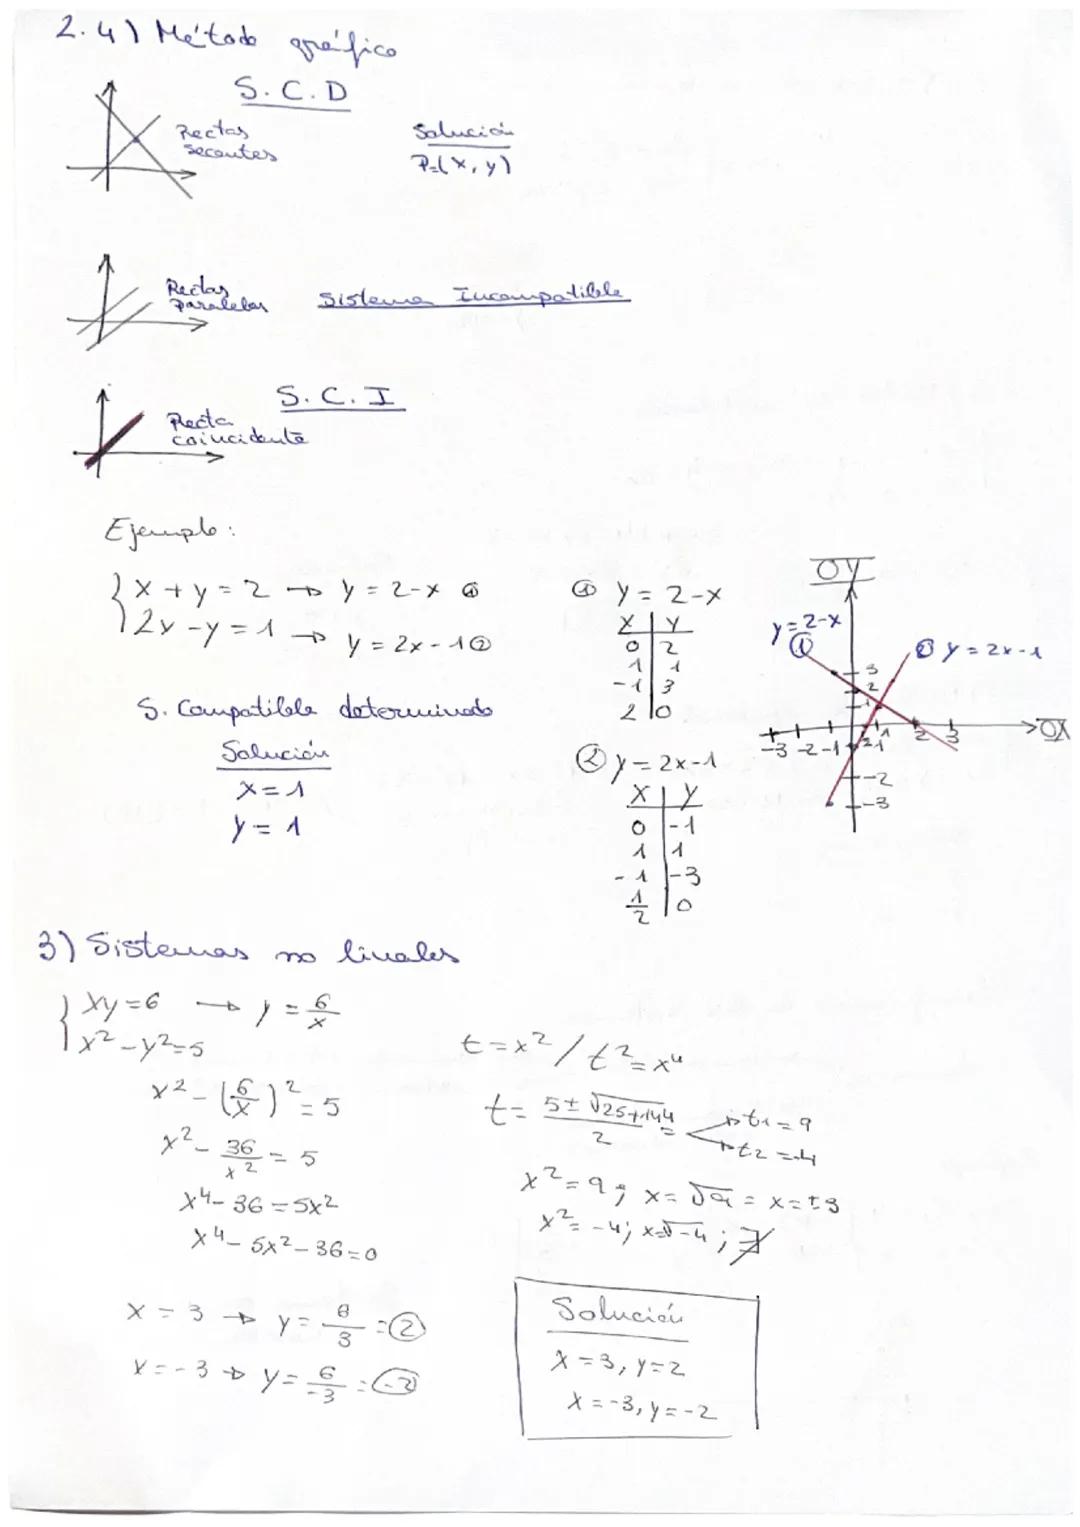 2.4) Método gráfico
S.C.D
Rectas
secantes
Solución
P=(x, y)
Rectas
paralelas
Sistema Incompatible
S.C.I
Recta
coincidente
Ejemplo:
{ x + y = 2 → y = 2-x ①
2x - y = 1 → y = 2x - 1 ②
S. Compatible determinado
Solución
x = 1
y = 1
① y = 2-x
x | y
0 | 2
1 | 1
-1 | 3
2 | 0
② y = 2x-1
x | y
0 | -1
1 | 1
-1 | -3
1/2 | 0
OY
y = 2-x
①
② y = 2x-1
3
2
1
-3 -2 -1 1 2 3
OX
-2
-3
3) Sistemas no linales
{ xy = 6 → y = 6/x
x² - y² = 5
x² - (6/x)² = 5
x² - 36/x² = 5
x⁴ - 36 = 5x²
x⁴ - 5x² - 36 = 0
t = x² / t² = x⁴
t = (5 ± √25+144)/2 = → t1 = 9
→ t2 = -4
x² = 9; x = √9 = x = ±3
x² = -4; x = √-4; ∄
x = 3 → y = 6/3 = ②
x = -3 → y = 6/-3 = (-2)
Solución
x = 3, y = 2
x = -3, y = -2